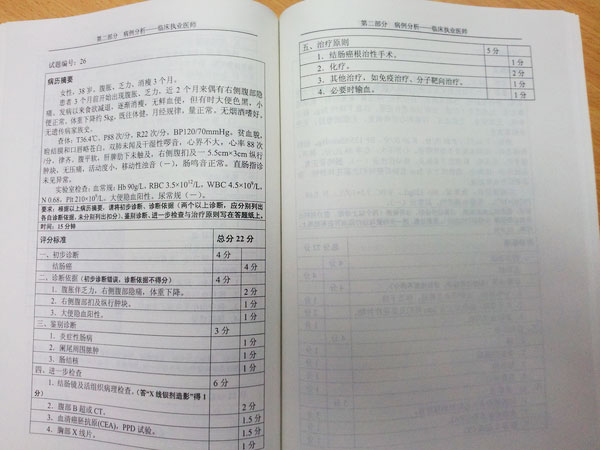 第二部分 病例分析——临床执业医师
试题编号:26
病历摘要
女性,38岁,腹胀、乏力、消瘦3个月。
患者3个月前开始出现腹胀、乏力,近2个月来偶有右侧腹部隐
痛,发病以来食欲减退、逐渐消瘦,无鲜血便,但有时大便色黑,小
便正常。体重下降约5kg。既往体健,月经规律,量正常。无烟酒嗜好。
无遗传病家族史。
查体:T36.4℃,P88次/分,R22次/分,BP120/70mmHg。贫血貌,
睑结膜和口唇略苍白,双肺未闻及干湿性啰音,心界不大,心率88次
/分,律齐,腹平软,肝脾肋下未触及,右侧腹扪及一5.5cm×3cm纵行
肿块,无压痛,活动度小,移动性浊音(一),肠鸣音正常。直肠指诊
未见异常。
实验室检查:血常规:Hb 90g/L,RBC 3.5×10¹²/L,WBC 4.5×10⁹/L,
N 0.68,Plt 210×10⁹/L。大便隐血阳性。尿常规(一)。
要求:根据以上病历摘要,请将初步诊断、诊断依据(两个以上诊断,应分别列出
各自诊断依据,未分别列出扣分)、鉴别诊断、进一步检查与治疗原则写在答题纸上。
时间:15分钟
评分标准 总分22分
一、初步诊断 4分
结肠癌 4分
二、诊断依据(初步诊断错误,诊断依据不得分) 4分
1.腹胀伴乏力,右侧腹部隐痛,体重下降。 2分
2.右侧腹部扪及纵行肿块。 1分
3.大便隐血阳性。 1分
三、鉴别诊断 3分
1.炎症性肠病 1分
2.阑尾周围脓肿 1分
3.肠结核 1分
四、进一步检查 6分
1.结肠镜及活组织病理检查。(答“X线钡剂造影”得1
分)
2.腹部B超或CT。 2分
3.血清癌胚抗原(CEA),PPD试验。 1.5分
4.胸部X线片。 1.5分
1分
第二部分 病例分析——临床执业医师
五、治疗原则 5分
1.结肠癌根治性手术。 1分
2.化疗。 2分
3.其他治疗,如免疫治疗、分子靶向治疗。 1分
4.必要时输血。 1分